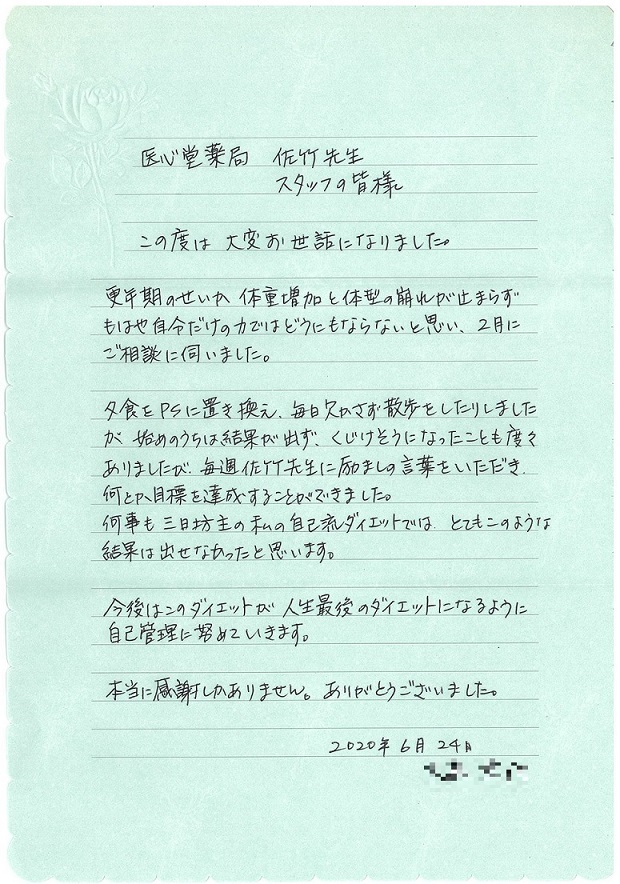 医心堂薬局 佐竹先生
スタッフの皆様
この度は 大変お世話になりました。
更年期のせいか 体重増加と体型の崩れが止まらず
もはや自分だけの力ではどうにもならないと思い、2月に
ご相談に伺いました。
夕食をPSに置き換え、毎日欠かさず散歩をしたりしました
が、始めのうちは結果が出ず、くじけそうになったことも度々
ありましたが、毎週佐竹先生に励ましの言葉をいただき、
何とか目標を達成することができました。
何事も三日坊主の私の自己流ダイエットでは、とてもこのような
結果は出せなかったと思います。
今後はこのダイエットが 人生最後のダイエットになるように
自己管理に努めていきます。
本当に感謝しかありません。ありがとうございました。
2020年6月24日